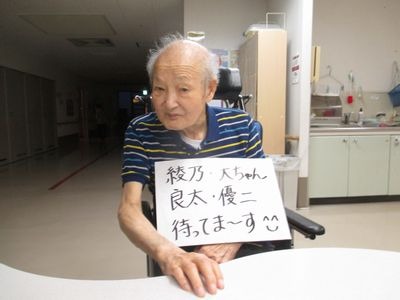 綾乃・大ちゃん
良太・優二
待ってま〜す